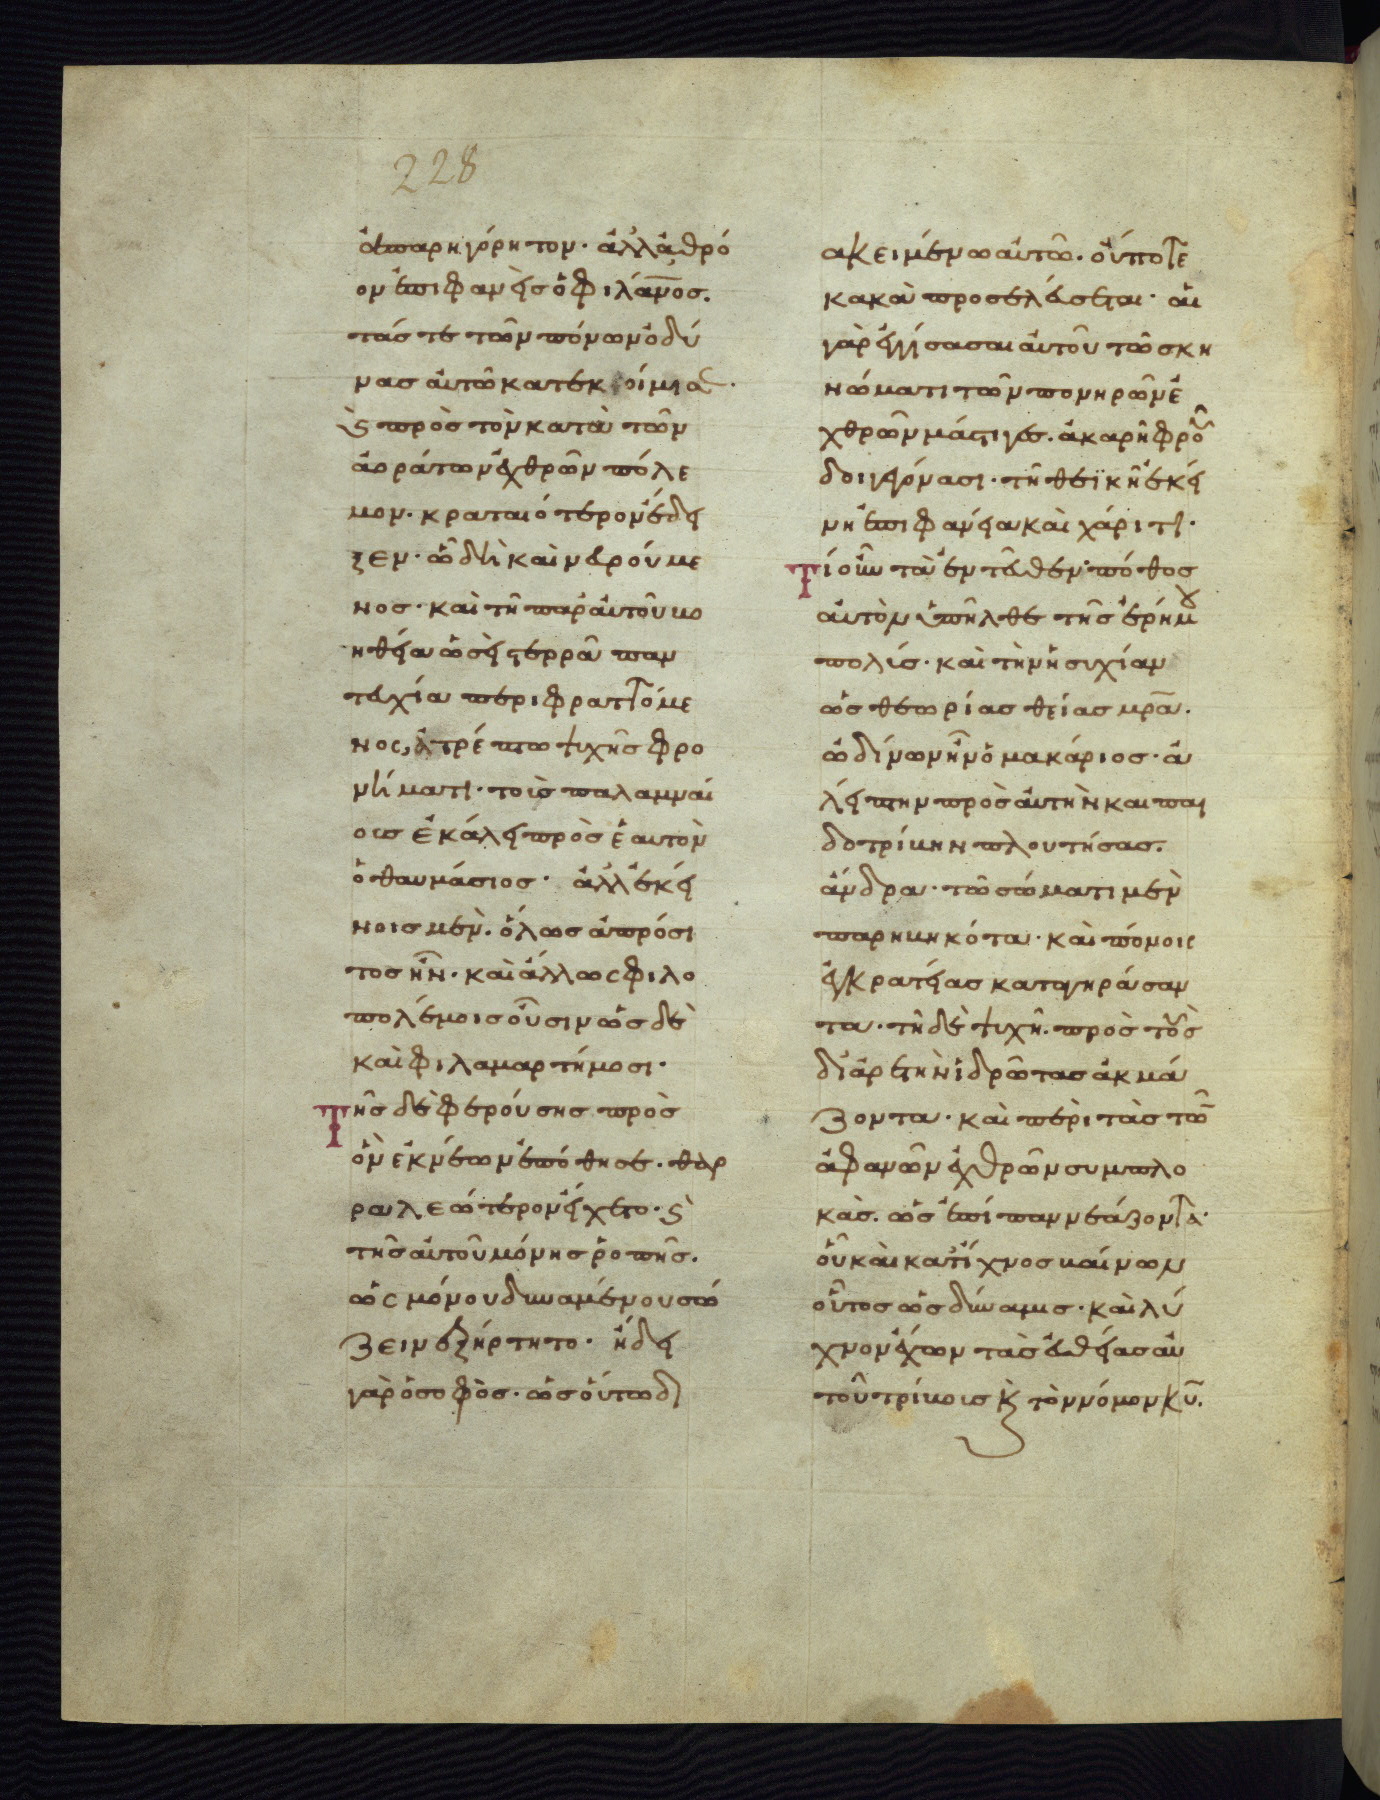 228
ἀπαρηγόρητον· ἀλλ' ἀθρό
ον ἐπιφανεὶς ὁ φιλάνος.
τάς τε τῶν πόνων ὀδύ
νας αὐτῶ κατεκοίμισ·
ϛ πρὸς τὸν κατὰ τῶν
ἀοράτων ἐχθρῶν πόλε
μον· κραταιότερον ἔδει
ξεν· ὧ δὴ καὶ νευρούμε
νος· καὶ τῆ παρ' αὐτοῦ βο
ηθεία ὡσεὶ στερρᾶ παν
τευχία περιφραττόμε
νος, ἀτρέπτω ψυχῆς φρο
νήματι· τοῖς παλαμναί
οις ἐκάλει πρὸς ἑαυτὸν
ὁ θαυμάσιος· ἀλλ' ἐκεί
νοις μὲν· ὅλως ἀπρόσι
τος ἦν· καὶ ἄλλως φιλο
πολέμοις οὖσιν ὡς δὲ
καὶ φιλαμαρτήμοσι·
Τῆς δὲ φερούσης πρὸς
ὃν ἐκ νέων ἐπόθησε· θαρ
ραλεώτερον εἴχετο· ϛ
τῆς αὐτοῦ μόνης ῥοπῆς.
ὡς μόνου δυναμένου σώ
ζειν ἐξήρτητο· ἤδει
γὰρ ὁ σοφὸς· ὡς οὕτω δι
ακειμένω αὐτῶ· οὔποτε
κακὰ προσελεύσεται· αἱ
γὰρ ἐγγίσασαι αὐτοῦ τῶ σκη
νώματι τῶν πονηρῶν ἐ
χθρῶν μάστιγες· ἀκαρῆ φροῦ
δοι γεγόνασι· τῆ θεϊκῆ ἐκεί
νη ἐπιφανεία καὶ χάριτι·
Τί οὖν τὰ ἐντεῦθεν· πόθος
αὐτὸν ὑπῆλθε τῆς ἐρήμου
πόλις· καὶ τὴν ἡσυχίαν
ὡς θεωρίας θείας μρα·
ὠδίνων ἦν ὁ μακάριος· ἀ
λείπτην πρὸς αὐτὴν καὶ παι
δοτρίβην πλουτήσας·
ἄνδρα· τῶ σώματι μὲν
παρηβηκότα· καὶ πόνοις
ἐγκρατείας καταγηράσαν
τα· τῆ δὲ ψυχῆ· πρὸς τοὺς
δι' ἀρετὴν ἱδρῶτας ἀκμά
ζοντα· καὶ περὶ τὰς τῶν
ἀφανῶν ἐχθρῶν συμπλο
κὰς· ὡς ἐπίπαν νεάζοντα·
οὗ καὶ κατ' ἴχνος βαίνων
οὗτος ὡς δύναμις· καὶ λύ
χνον ἔχων τὰς εὐθείας αὐ
τοῦ τρίβοις κ τὸν νόμον κυ.